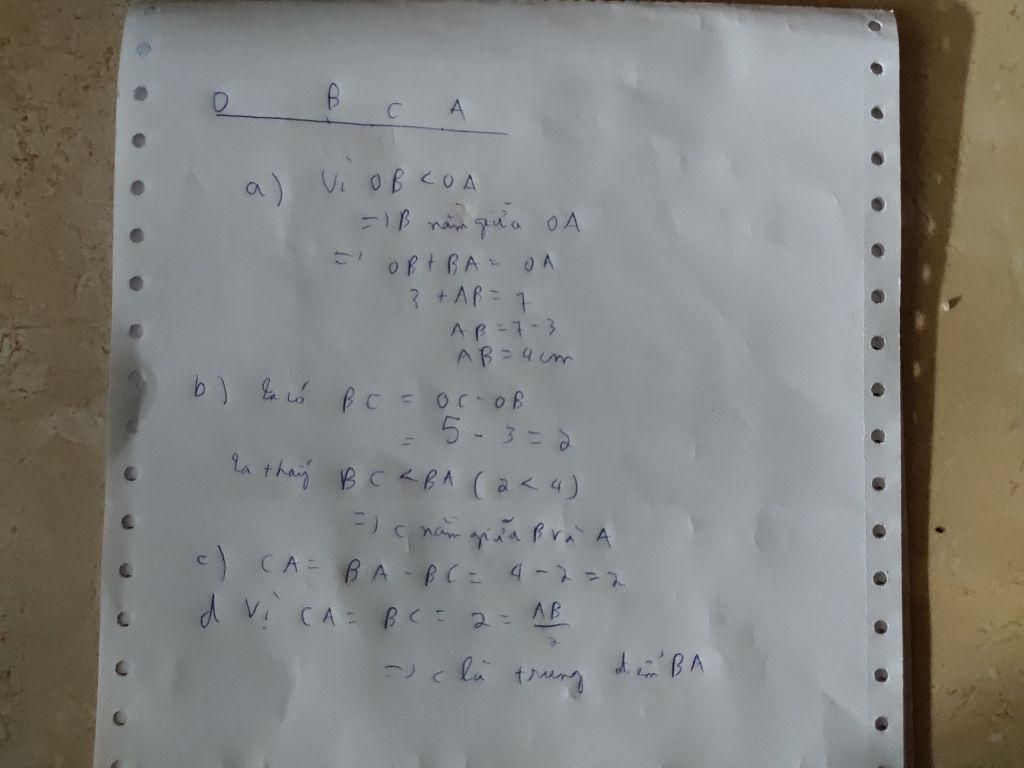 O B C A
a) Vì OB < OA
=> B nằm giữa OA
=> OB + BA = OA
3 + AB = 7
AB = 7 - 3
AB = 4 cm
b) Ta có BC = OC - OB
= 5 - 3 = 2
Ta thấy BC < BA ( 2 < 4 )
=> C nằm giữa B và A
c) CA = BA - BC = 4 - 2 = 2
d Vì CA = BC = 2 = AB/2
=> C là trung điểm BA